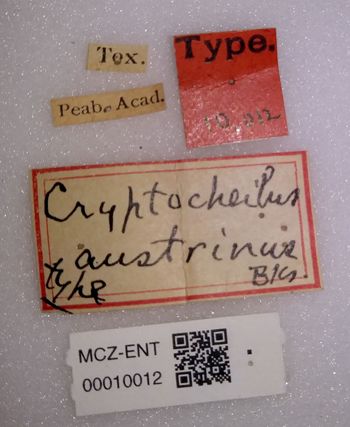 Tex.
Type.
Peab. Acad.
10,012
Cryptocheilus
austrinus
type Bks.
MCZ-ENT
00010012